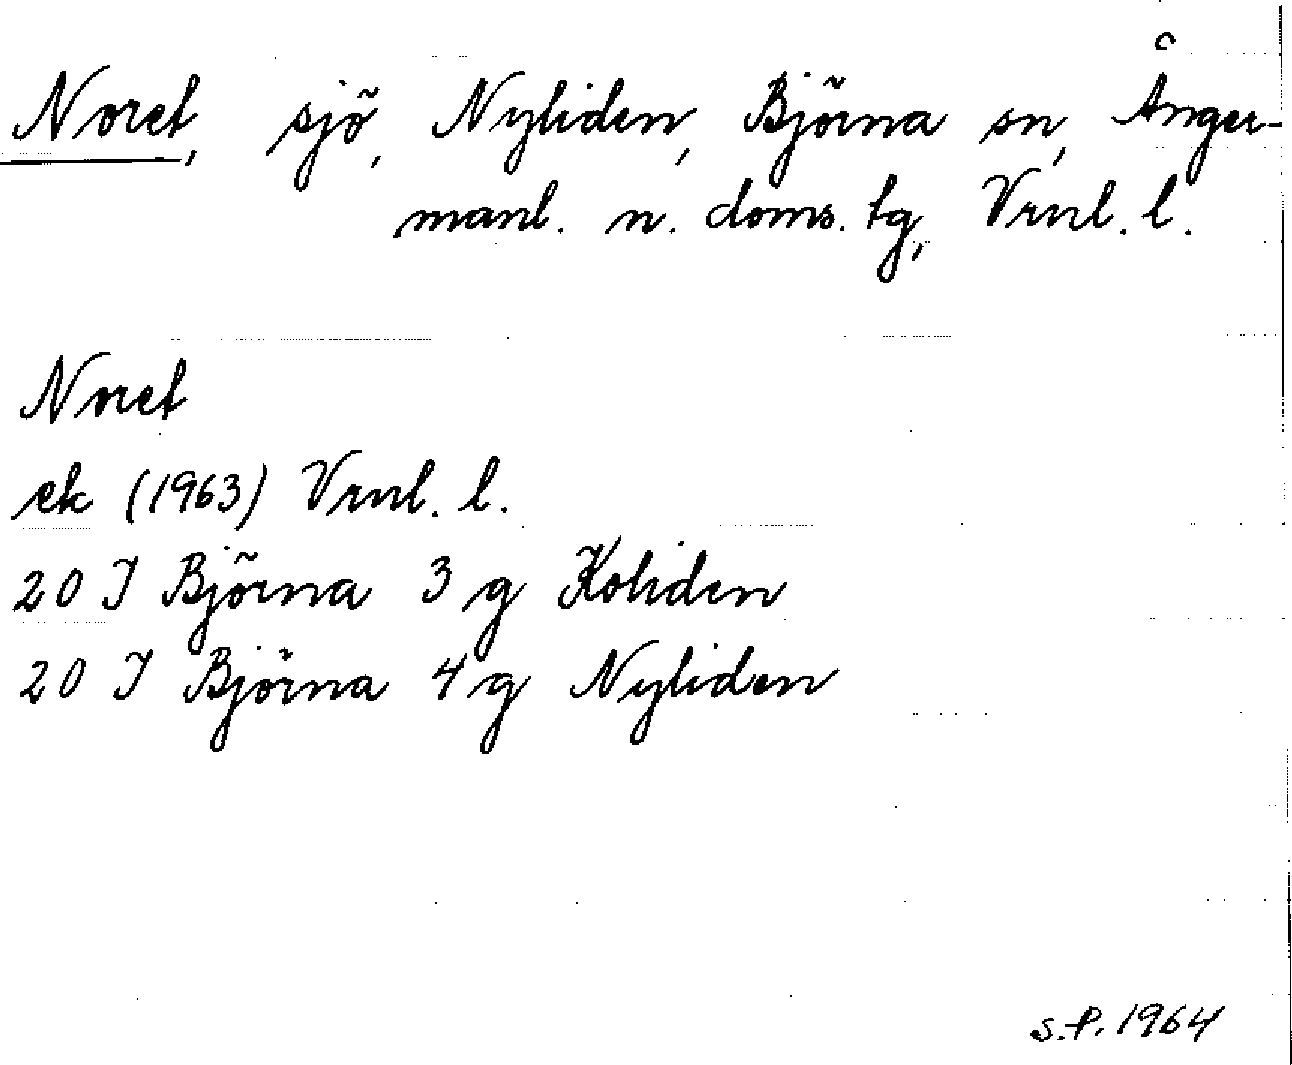 Noret, sjö, Nyliden, Björna sn, Ånger-
manl. n. doms. tg, Vrnl. l.
Noret
ek (1963) Vrnl. l.
20 I Björna 3 g Koliden
20 I Björna 4 g Nyliden
S.P. 1964